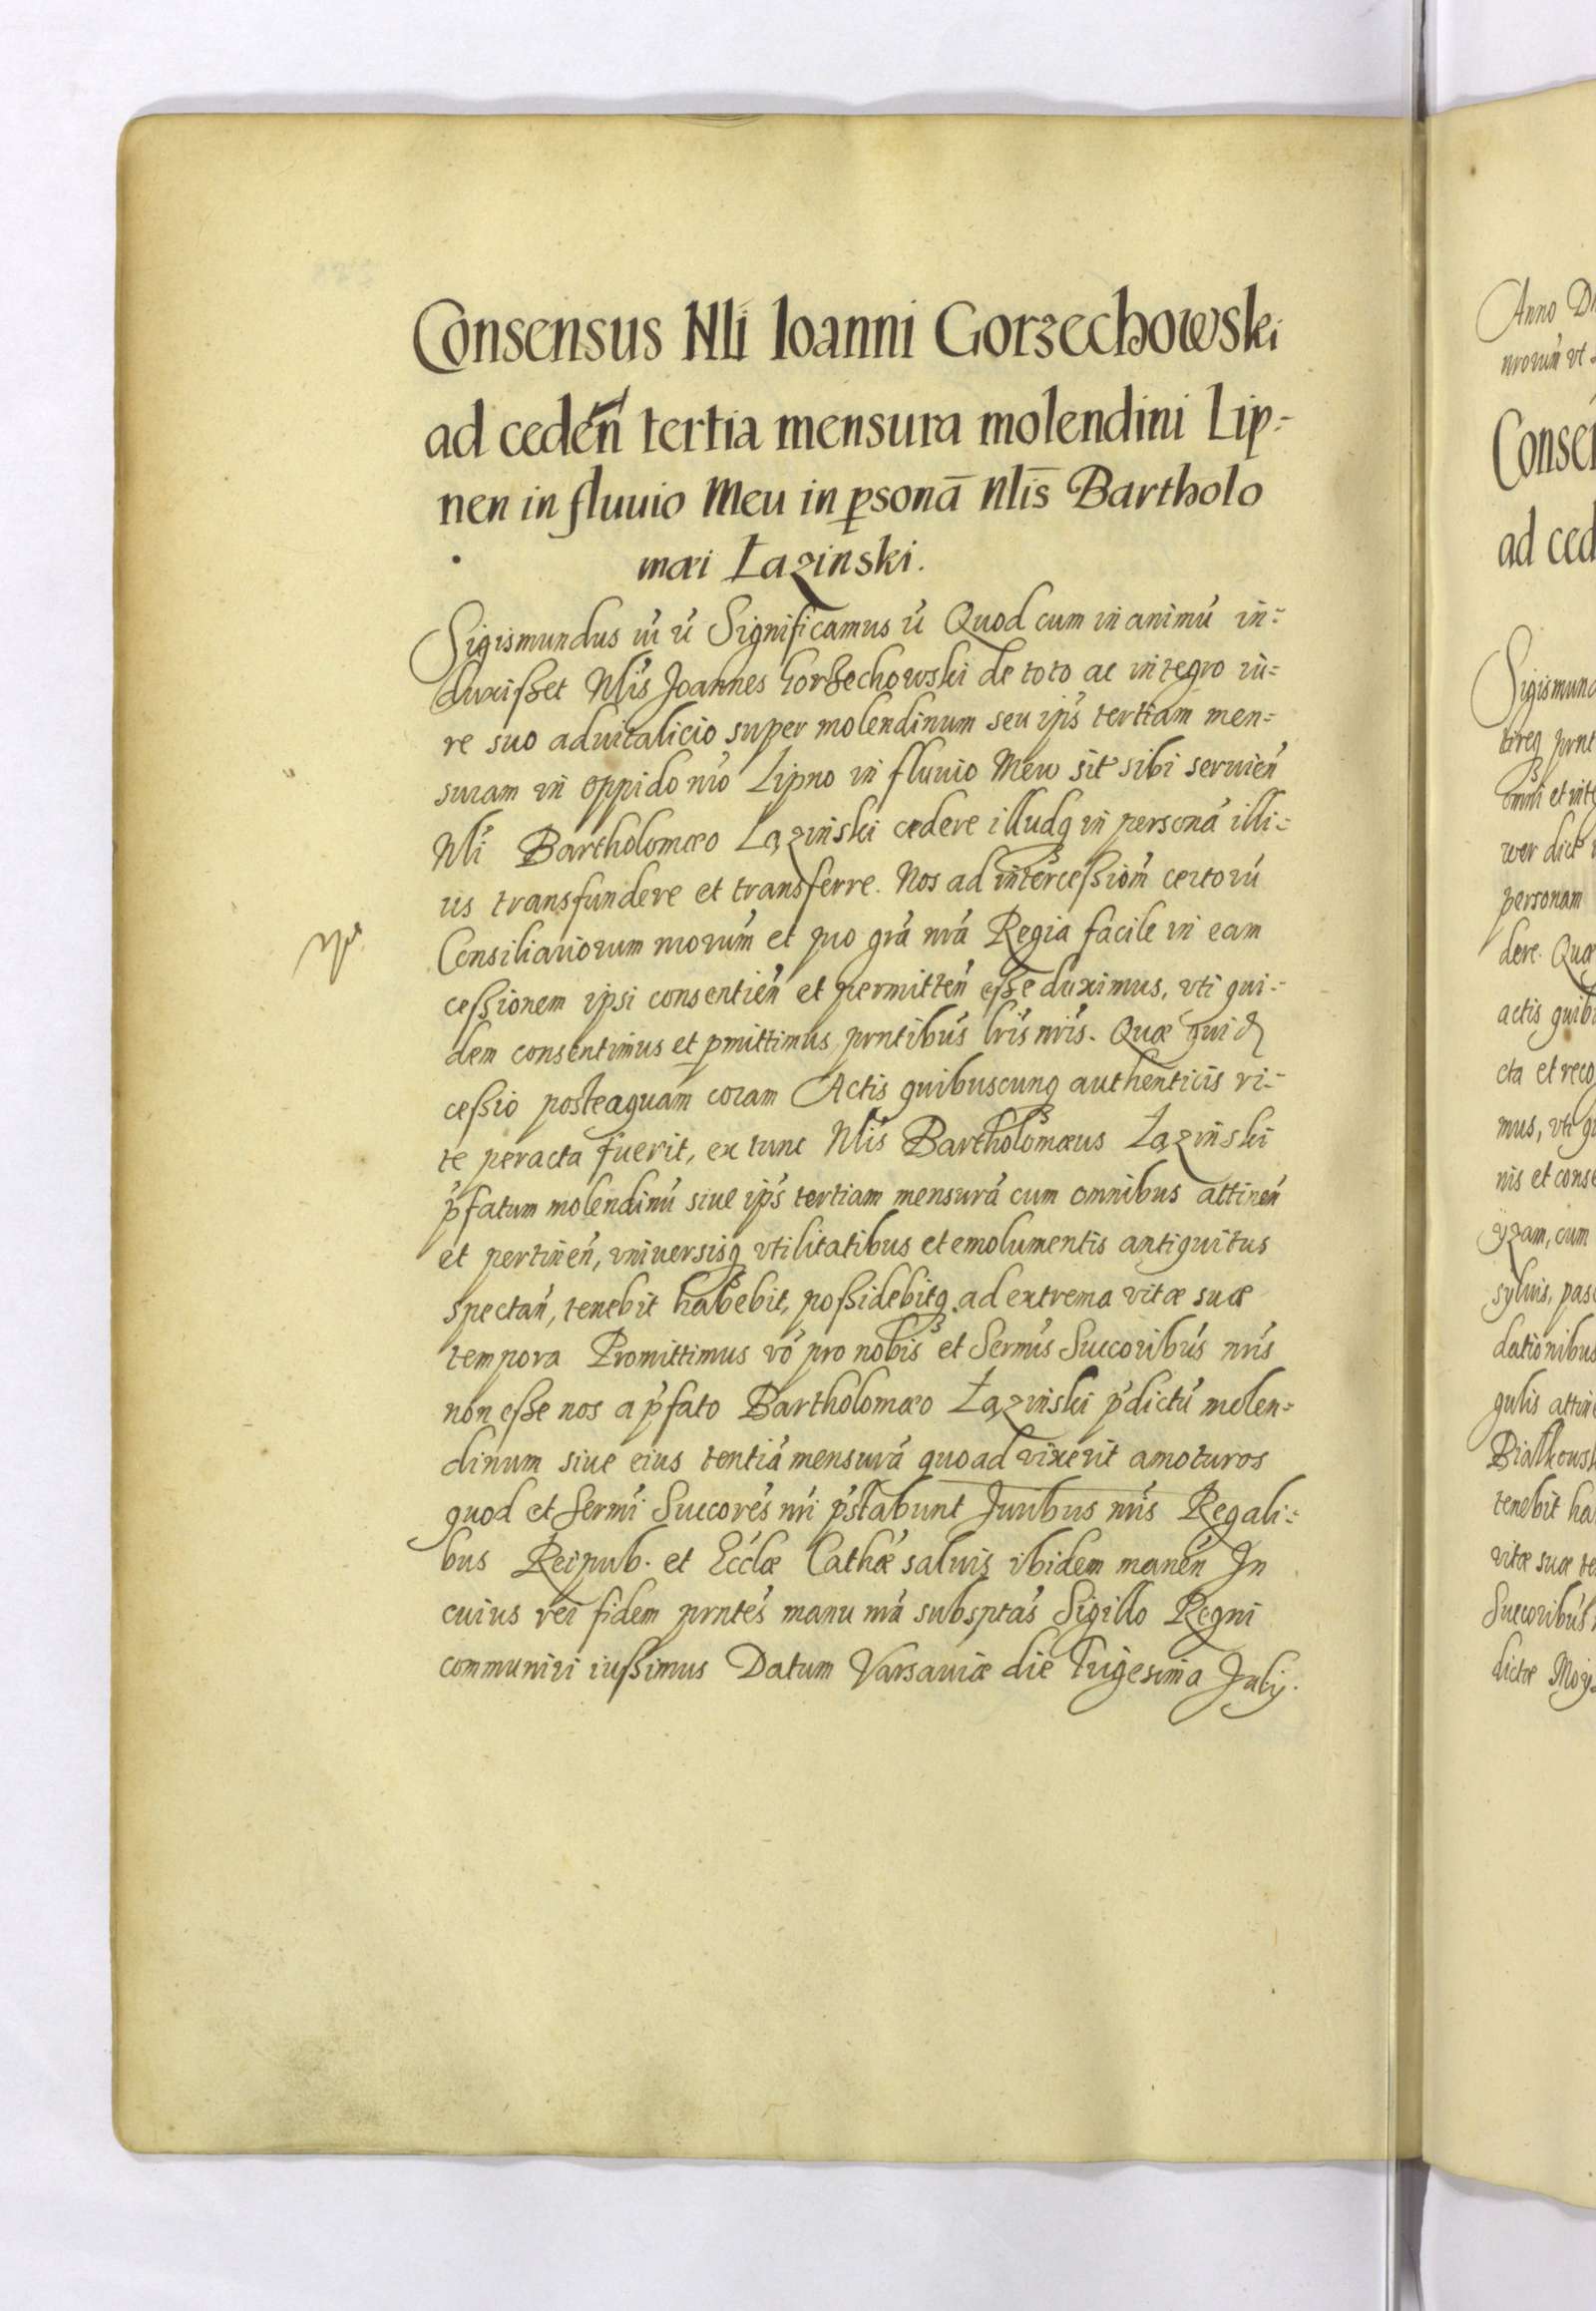 Consensus Nli Ioanni Gorzechowski
ad ceden̄ tertia mensura molendini Lip=
nen in fluuio Meu in ꝑsonā Nlis̄ Bartholo
mæi Łazinski.
Sigismundus &c. Significamus &c. Quod cum in animū in=
duxißet Nlis Joannes Gorzechowski de toto ac integro iu=
re suo aduitalicio super molendinum seu ips tertiam men=
suram in oppido nro Lipno in fluuio Meu sit sibi seruien
Nli Bartholomæo Łazinski cedere illudq in personā illi=
us transfundere et transferre. Nos ad intercessiom certorū
Consiliariorum nrorum et pro gra nra Regia facile in eam
ceßionem ipsi consentien et permitten eße duximus, vti qui=
dem consentimus et ꝑmittimus prntibus lris nris. Quæ quid
ceßio posteaquam coram Actis quibuscunq authenticis ri=
te peracta fuerit, ex tunc Nlis Bartholomæus Łazinski
pfatum molendinū siue ips tertiam mensurā cum omnibus attinen
et pertinen, vniuersisq vtilitatibus et emolumentis antiquitus
spectan, tenebit habebit, poßidebitq ad extrema vitæ suæ
tempora Promittimus vo pro nobis et Sermis Succoribus nris
non eße nos a pfato Bartholomæo Łazinski pdictū molen=
dinum siue eius tertiā mensurā quoad vixerit amoturos
quod et Sermi Succores nri pstabunt Juribus nris Regali=
bus Reipub. et Ecclæ Cathæ saluis ibidem manen In
cuius rei fidem prntes manu nra subsptas Sigillo Regni
communiri iußimus Datum Varsauiæ die Trigesima Julij.
Anno D
nrorum vt
Conse
ad ced
Sigismund
tireq prnt
omni et inte
wer dict
personam
dere. Quæ
actis quib
cta et reco
mus, vti q
nis et conse
yzam, cum
syluis, pas
dationibus
gulis attin
Białkowsk
tenebit ha
vitæ suæ te
Succoribus
dictæ